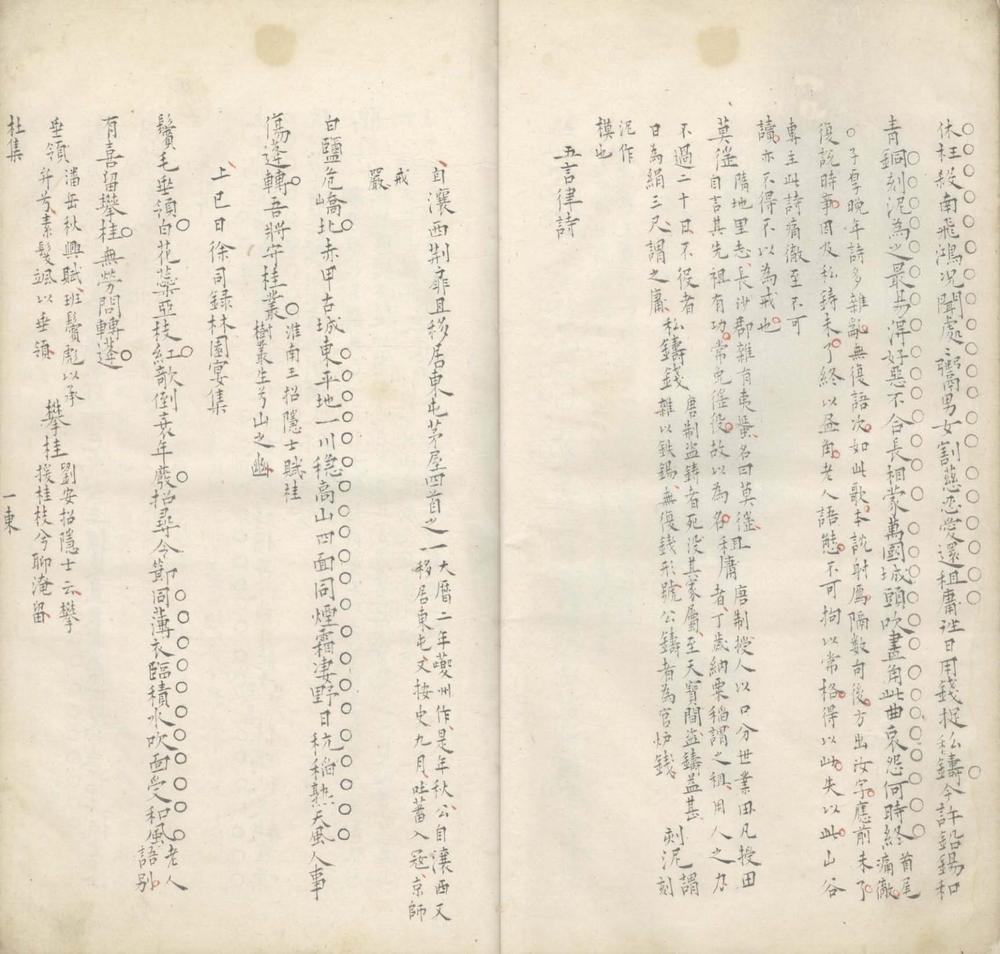 休枉殺南飛鴻况聞處處鬻男女割慈忍愛還租庸徃日用錢捉私鑄今許鉛錫和
青銅刻泥為之最易得好惡不合長相蒙萬國城頭吹畫角此曲哀怨何時終首尾痛徹
子厚晚年詩多雜亂無復語次如此歌本說射鴈隔數句後方出汝字應前未了
復說時事因及私鑄未了終以昼角老人語態不可拘以常格得以此失以此山谷
專主此詩痛徹至不可
讀亦不得不以為戒也
莫徭隋地里志長沙郡雜有夷蜑名曰莫徭且
自言其先祖有功常免徭役故以為名租庸
唐制授人以口分世業田凡授田
者丁歲納粟稲謂之租用人之力
不過二十日不役者
日為絹三尺謂之庸
私鑄錢
唐制盜鑄者死没其家屬至天寳間盜鑄益甚
雜以鉄錫無復錢形號公鑄者為官炉錢
刻泥謂刻
泥作
模也
五言律詩
自瀼西荆扉且移居東屯茅屋四首之一
大曆二年夔州作是年秋公自瀼西又
移居東屯丈按史九月吐蕃入冦京師
戒
嚴
白鹽危嶠北赤甲古城東平地一川穏高山四面同煙霜凄野日秔稲熟天風人事
傷蓬轉吾將守桂叢
淮南王招隱士賦桂
樹叢生兮山之幽
上巳日徐司録林園宴集
鬢毛垂領白花蘂亞枝紅欹倒衰年廢招尋令節同薄衣臨積水吹面受和風
老人
語别
有喜留攀桂無勞問轉蓬
垂領
潘岳秋興賦班鬢彪以承
弁兮素髮颯以垂領
攀桂
劉安招隱士云攀
援桂枝兮聊淹留
杜集
一東